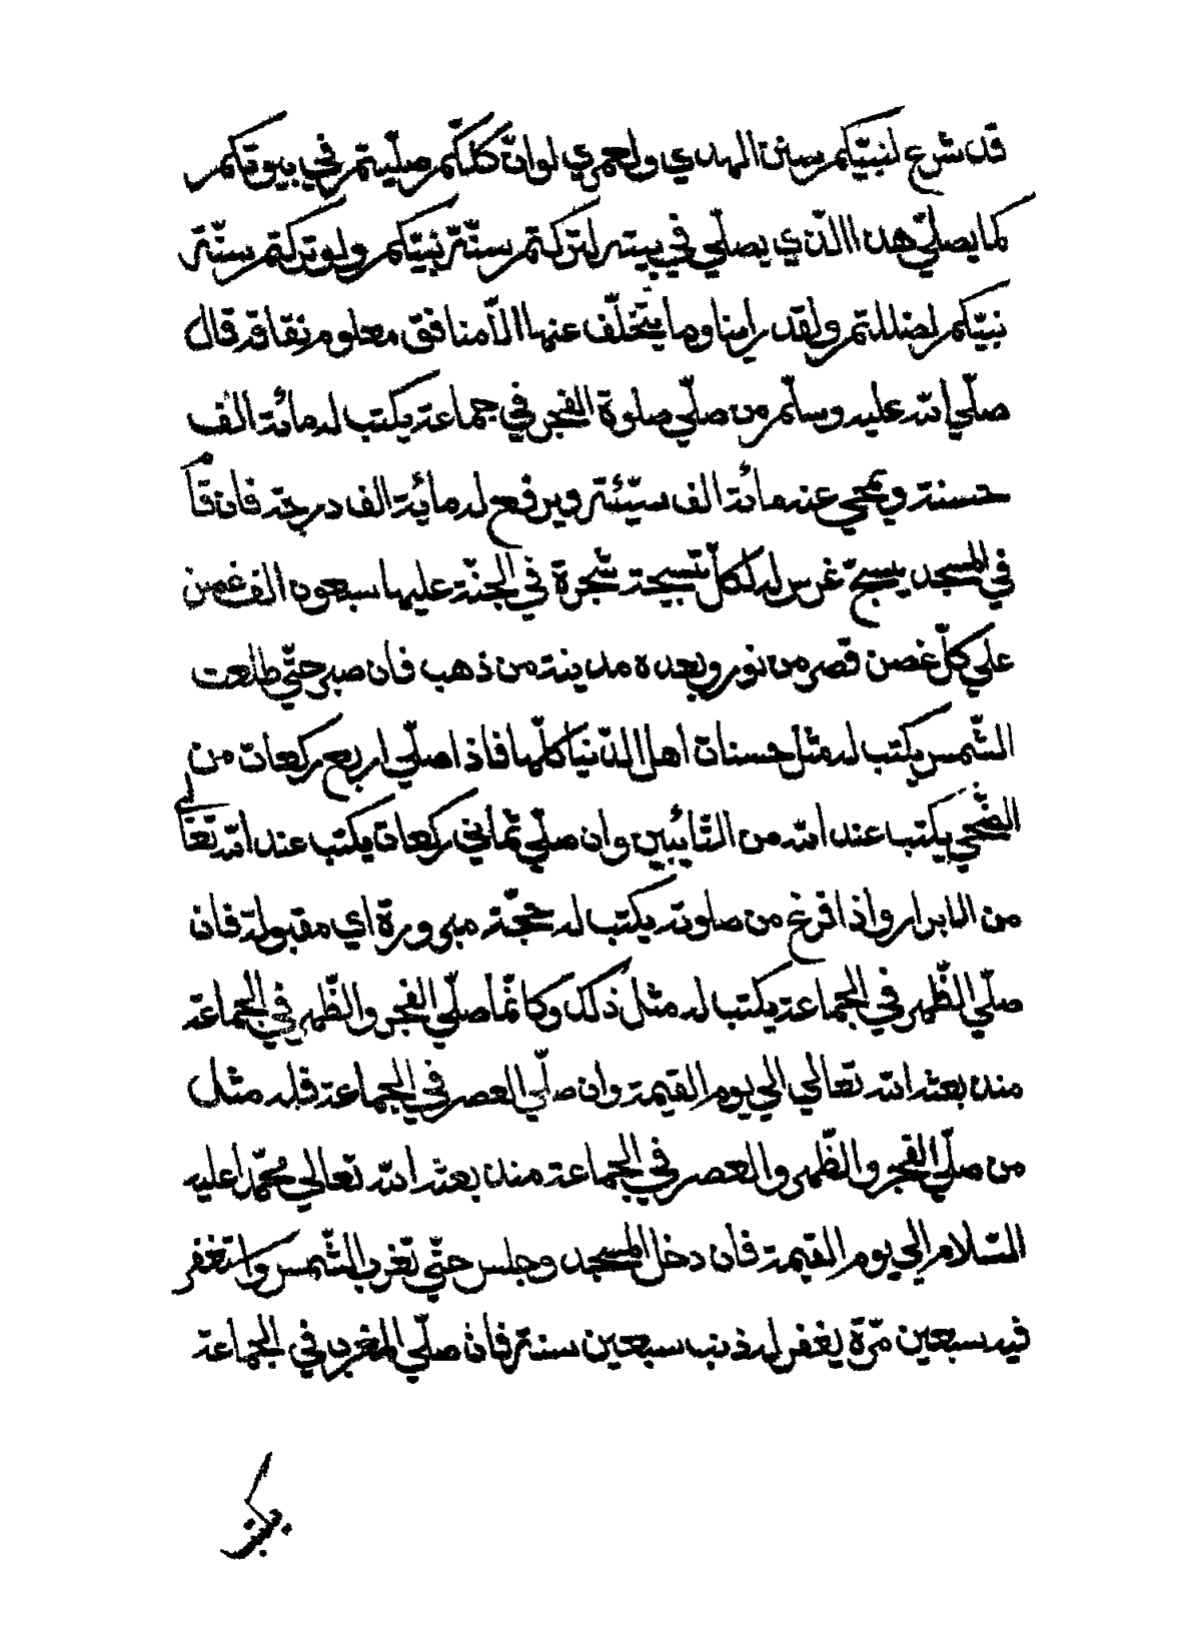 قد شرع لنبيّكم سنن الهدي ولعمري لو انّ كلّكم صلّيتم في بيوتكم
كما يصلّي هذا الّذي يصلّي في بيته لتركتم سنّة نبيّكم ولو تركتم سنّة
نبيّكم لضللتم ولقد راينا وما يتخلّف عنها الّا منافق معلوم نفاقه قال
صلّي الله عليه وسلّم من صلّي صلوة الفجر في جماعة يكتب له مائة الف
حسنة ويمحي عنه مائة الف سيّئة ويرفع له مائة الف درجة فان قام
في المسجد يسبّح غرس له لكلّ تسبيحة شجرة في الجنّة عليها سبعون الف غصن
علي كلّ غصن قصر من نور وبعده مدينة من ذهب فان صبر حتّي طلعت
الشّمس يكتب له مثل حسنات اهل الدّنيا كلّها فاذا صلّي اربع ركعات من
الضّحي يكتب عند الله من التّايبين وان صلّي ثماني ركعات يكتب عند الله تعالي
من الابرار واذا فرغ من صلوته يكتب له حجّة مبرورة اي مقبولة فان
صلّي الظّهر في الجماعة يكتب له مثل ذلك وكانّما صلّي الفجر والظّهر في الجماعة
منذ بعثه الله تعالي الي يوم القيمة وان صلّي العصر في الجماعة فله مثل
من صلّي الفجر والظّهر والعصر في الجماعة منذ بعث الله تعالي محمّدا عليه
السّلام الي يوم القيمة فان دخل المسجد وجلس حتّي تغرب الشّمس واستغفر
فيه سبعين مرّة يغفر له ذنب سبعين سنة فان صلّي المغرب في الجماعة
يكتب